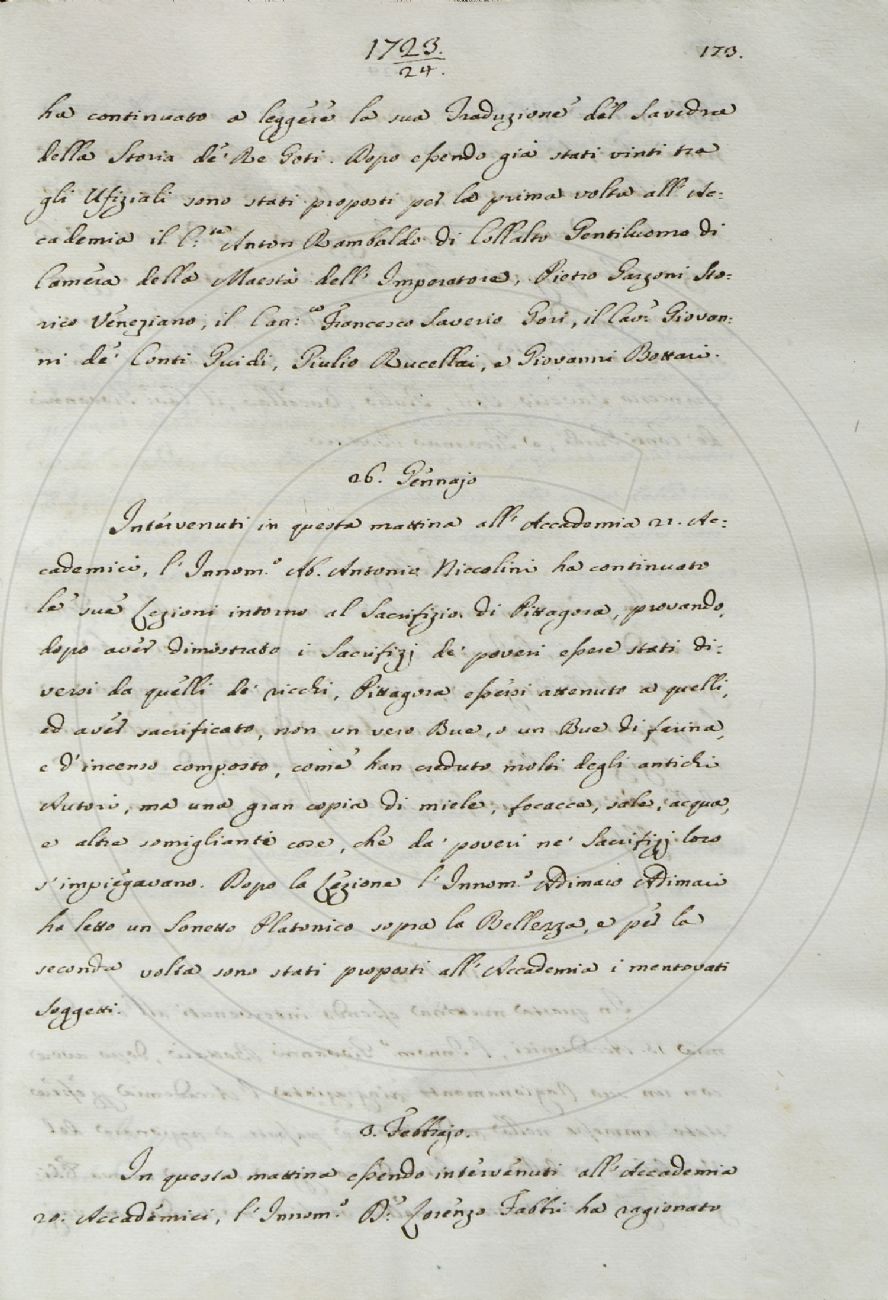 1723.
24.
173.
ha continuato a leggere la sua Traduzione del Savedra
della Storia de' Re Goti. Dopo essendo già stati vinti tra
gli Ufiziali sono stati proposti per la prima volta all' Ac:
cademia il C.te Anton Rambaldo di Collalto Gentiluomo di
Camera della Maestà dell' Imperatore, Pietro Garzoni Sto:
rico Veneziano, il Can:co Francesco Saverio Gori, il Cav.r Giovan:
ni de' Conti Guidi, Giulio Rucellai, e Giovanni Bottari.
26. Gennajo
Intervenuti in questa mattina all' Accademia 21. Ac:
cademici, l' Innom.o Ab. Antonio Niccolini ha continuato
le sue Lezioni intorno al Sacrifizio di Pittagora, provando,
dopo aver dimostrato i Sacrifizj de' poveri essere stati di:
versi da quelli de' ricchi, Pittagora essersi attenuto a quelli,
ed aver sacrificato, non un vero Bue, o un Bue di farina,
e d' incenso composto, come han creduto molti degli antichi
Autori, ma una gran copia di miele, focacce, sale, acqua,
e altre somiglianti cose, che da' poveri ne' Sacrifizj loro
s' impiegavano. Dopo la Lezione l' Innom.o Adimaro Adimari
ha letto un Sonetto Platonico sopra la Bellezza, e per la
seconda volta sono stati proposti all' Accademia i mentovati
Soggetti.
3. Febbrajo.
In questa mattina essendo intervenuti all' Accademia
20. Accademici, l' Innom.o D.r Lorenzo Fabbri ha ragionato